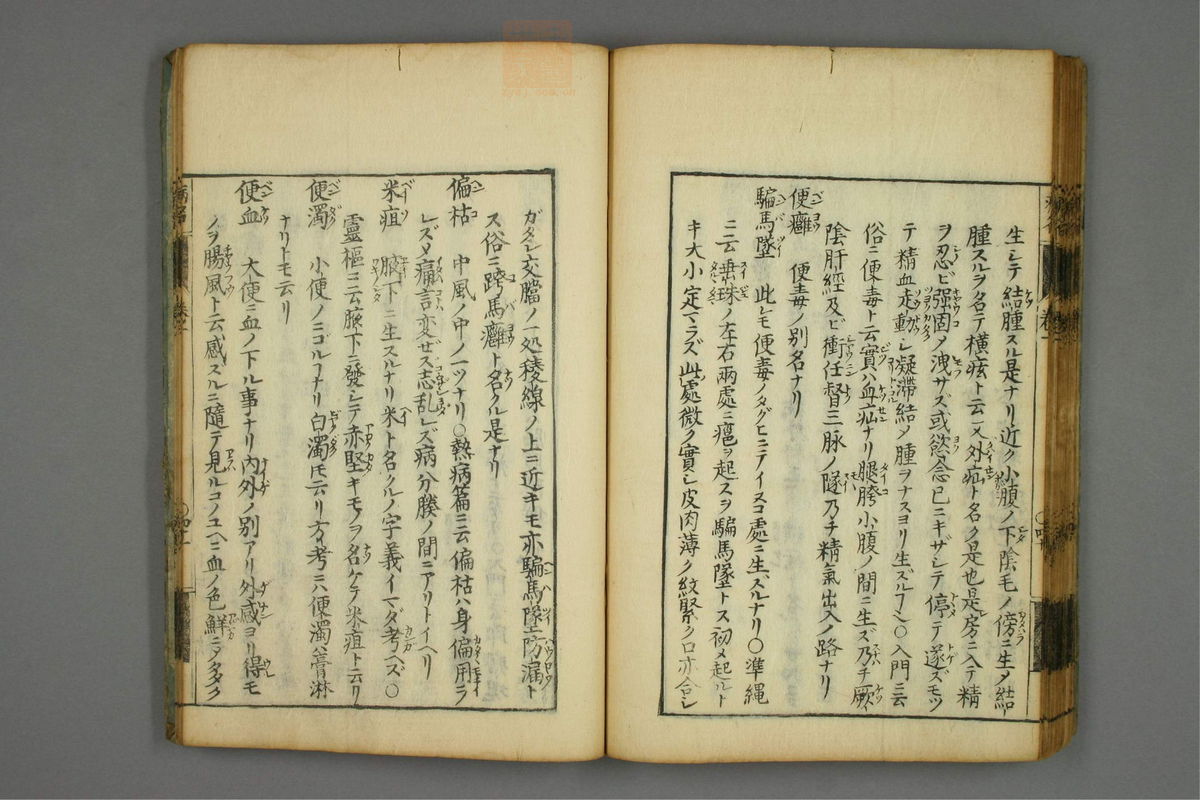 生シテ結腫スル是ナリ近ク小腹ノ下陰毛ノ傍ニ生メ結
腫スルヲ名テ横痃ト云又外疝ト名ク是也是房ニ入テ精
ヲ忍ビ强固メ洩サズ或慾念已ニキザシテ停テ遂ズモツ
テ精血走動シ凝滞結メ腫ヲナスヨリ生ズルフ〇入門ニ云
俗ニ便毒ト云實ハ血疝ナリ腿胯小腹ノ間ニ生ズ乃チ厥
陰肝經及ビ衝任督三脉ノ隧乃チ精氣出入ノ路ナリ
便癰 便毒ノ別名ナリ
騙馬墜 此レモ便毒ノタグヒニテイスコ處ニ生ズルナリ〇準縄
ニ云垂珠ノ左右兩處ニ瘡ヲ起スヲ騙馬墜トス初メ起ルト
キ大小定マラズ此處微ク實シ皮肉薄ク紋緊ク口亦合シ
ガタシ交牖ノ一処稜線ノ上ニ近キモ亦騙馬墜防漏ト
ス俗ニ跨馬癰ト名クル是ナリ
偏枯 中風ノ中ノ一ツナリ〇熱病篇ニ云偏枯ハ身偏用ラ
レズメ痛言変ゼス志乱レズ病分腠ノ間ニアリトイヘリ
米疽 腋下ニ生スルナリ米ト名クルノ字義イマダ考ヘズ〇
靈樞ニ云腋下ニ發シテ赤堅キモノヲ名ケテ米疽ト云リ
便濁 小便ノニゴルフナリ白濁トモ云リ方考ニハ便濁ハ膏淋
ナリトモ云リ
便血 大便ニ血ノ下ル事ナリ内外ノ別アリ外感ヨリ得モ
ノヲ腸風ト云感スルニ隨テ見ルコノユヘニ血ノ色鮮ニメタダク